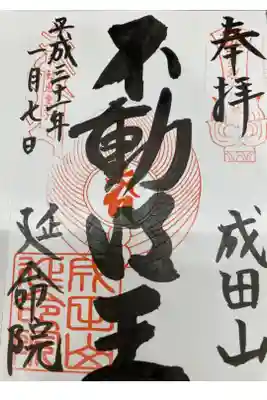 奉拝
成田山
不動明王
平成三十一年
一月七日
延命院
成田山
延命院